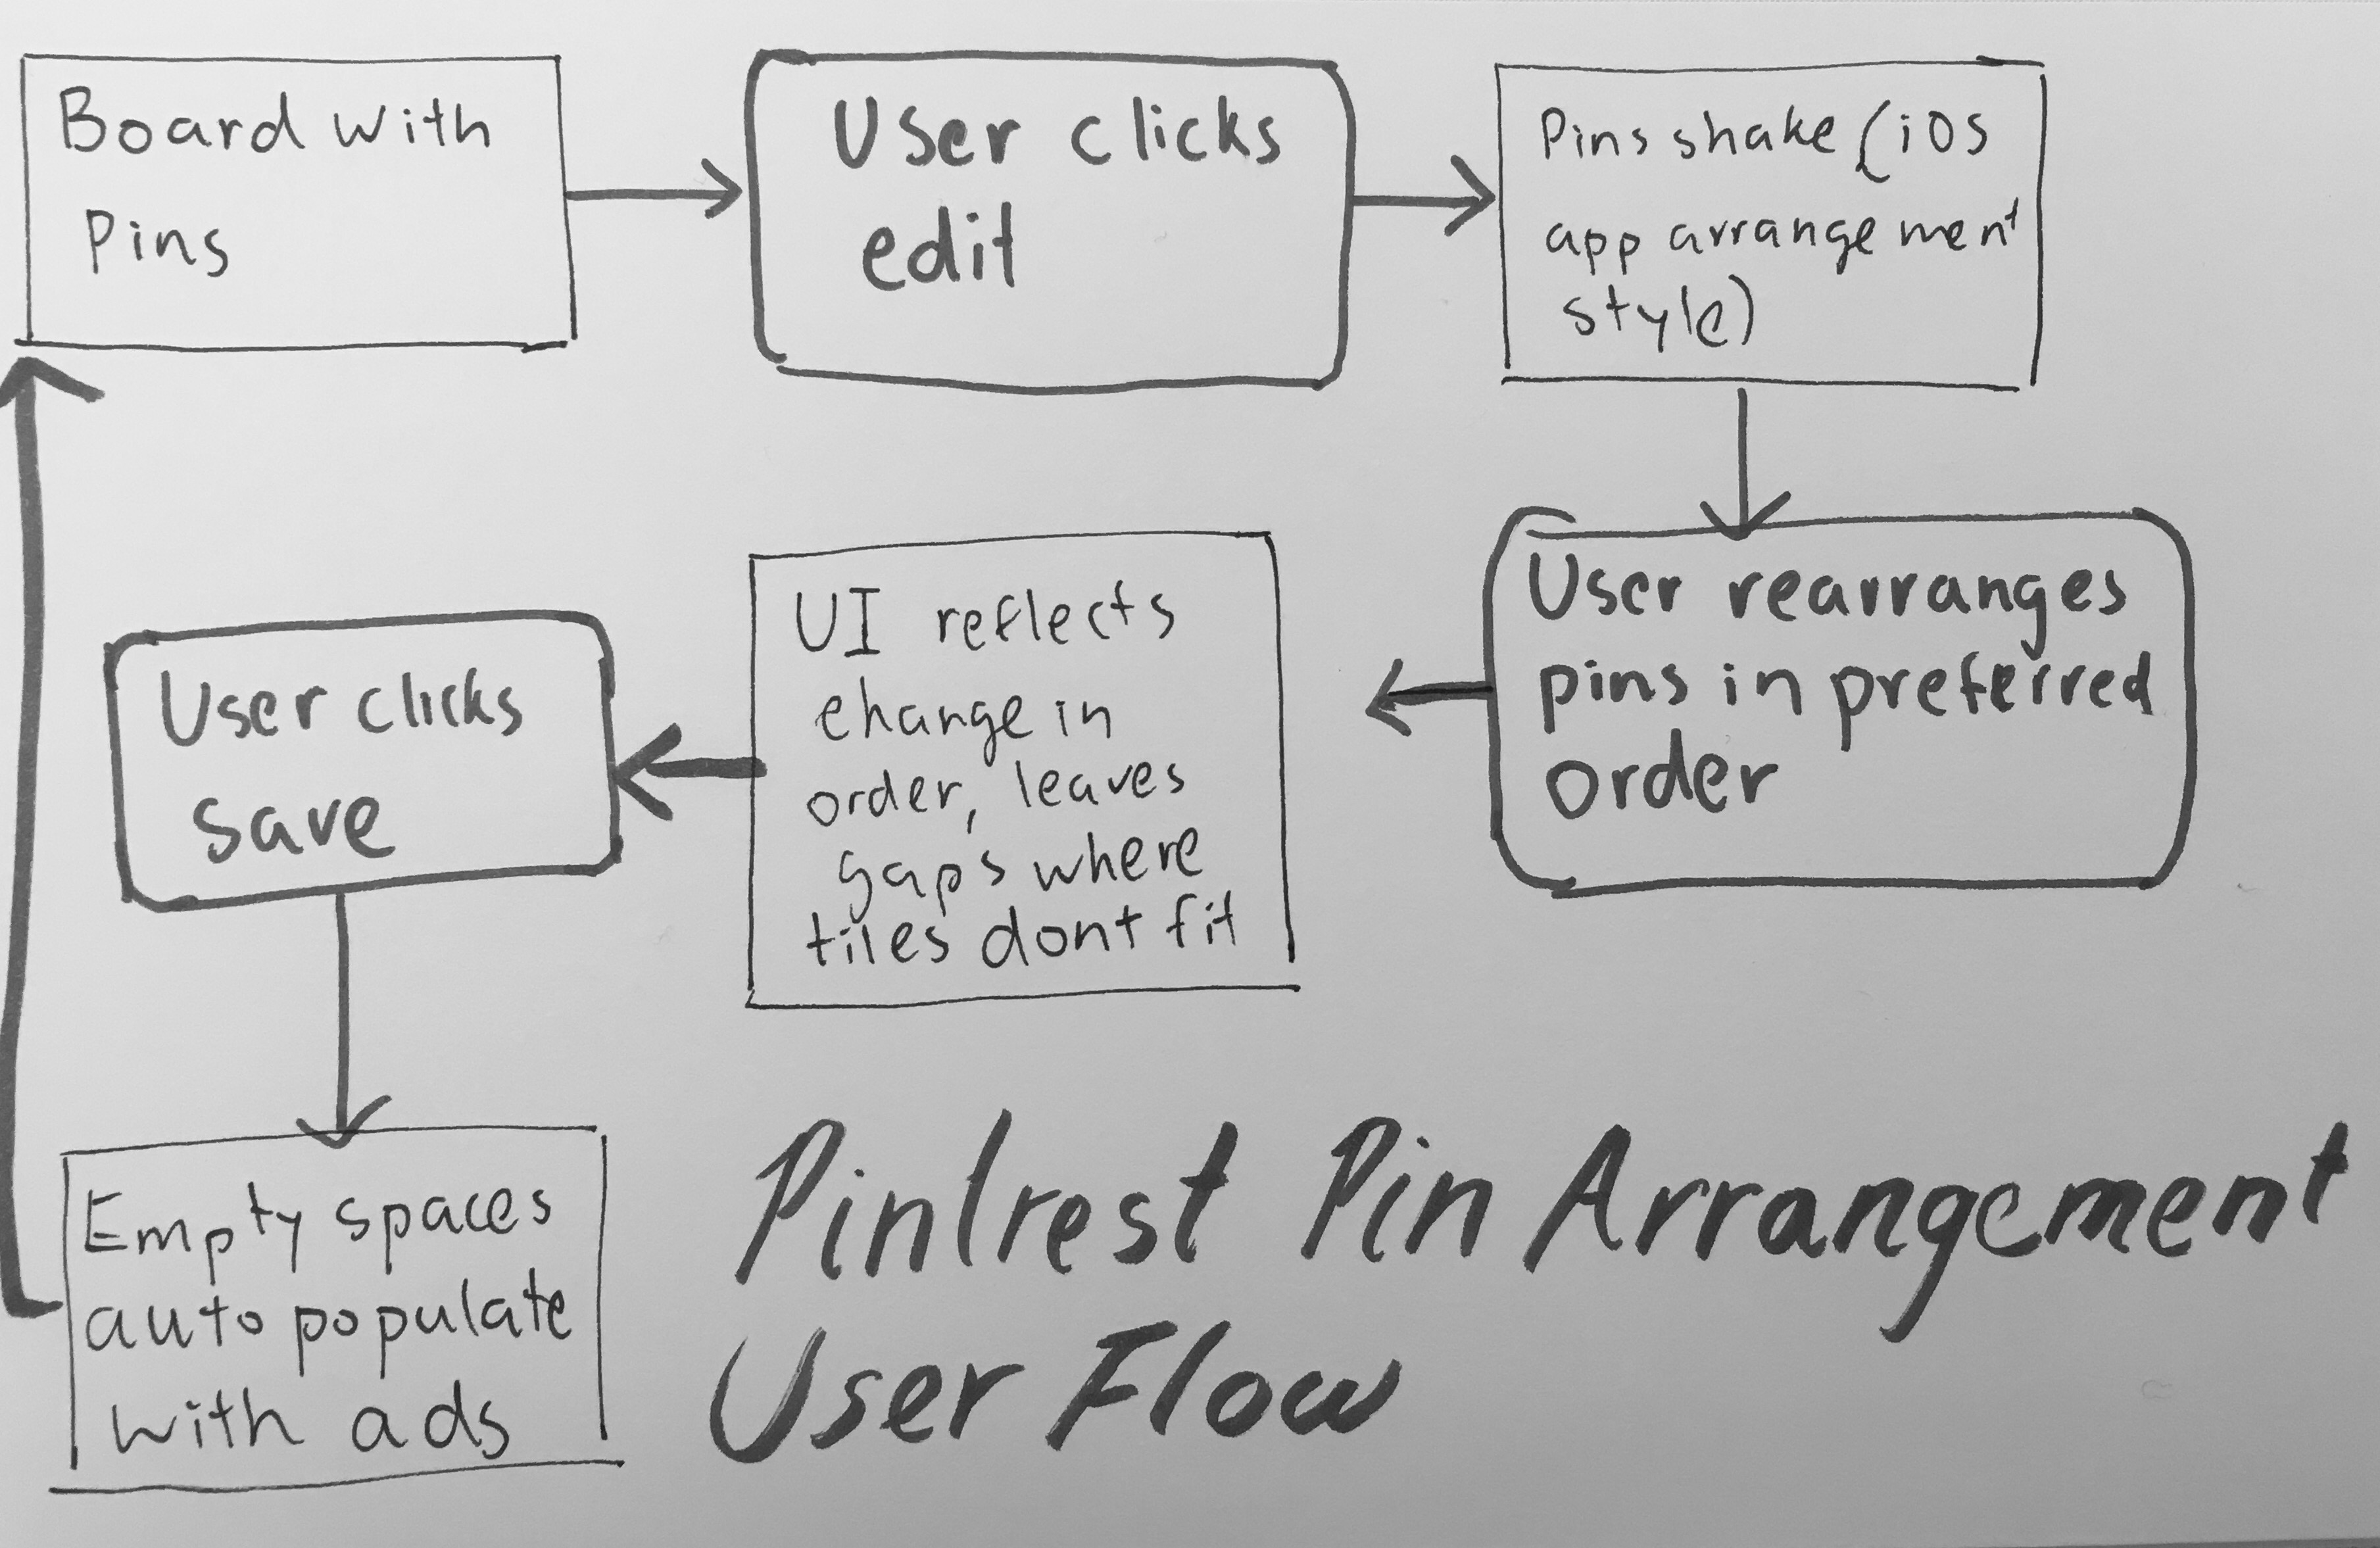 Board with
Pins
User clicks
edit
Pins shake (iOS
app arrangement
style)
User rearranges
pins in preferred
order
UI reflects
change in
order, leaves
gaps where
tiles dont fit
User clicks
save
Empty spaces
auto populate
with ads
Pintrest Pin Arrangement
User Flow